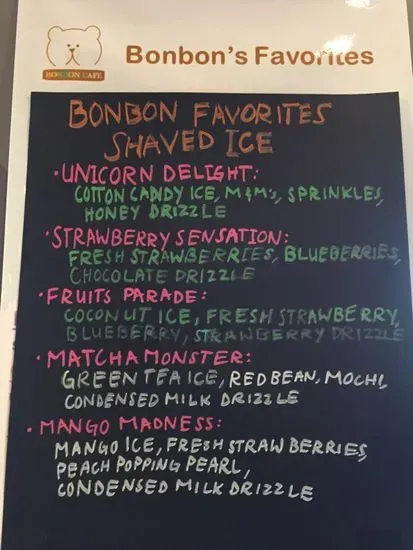 BONBON CAFE
Bonbon's Favorites
BONBON FAVORITES
SHAVED ICE
• UNICORN DELIGHT:
COTTON CANDY ICE, M&M's, SPRINKLES,
HONEY DRIZZLE
• STRAWBERRY SENSATION:
FRESH STRAWBERRIES, BLUEBERRIES,
CHOCOLATE DRIZZLE
• FRUITS PARADE:
COCONUT ICE, FRESH STRAWBERRY,
BLUEBERRY, STRAWBERRY DRIZZLE
• MATCHA MONSTER:
GREEN TEA ICE, RED BEAN, MOCHI,
CONDENSED MILK DRIZZLE
• MANGO MADNESS:
MANGO ICE, FRESH STRAWBERRIES,
PEACH POPPING PEARL,
CONDENSED MILK DRIZZLE